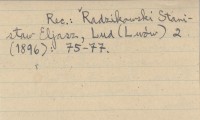 Rec.: Radzikowski Stani-
sław Eljasz, Lud (Lwów) 2
(1896), 75-77.